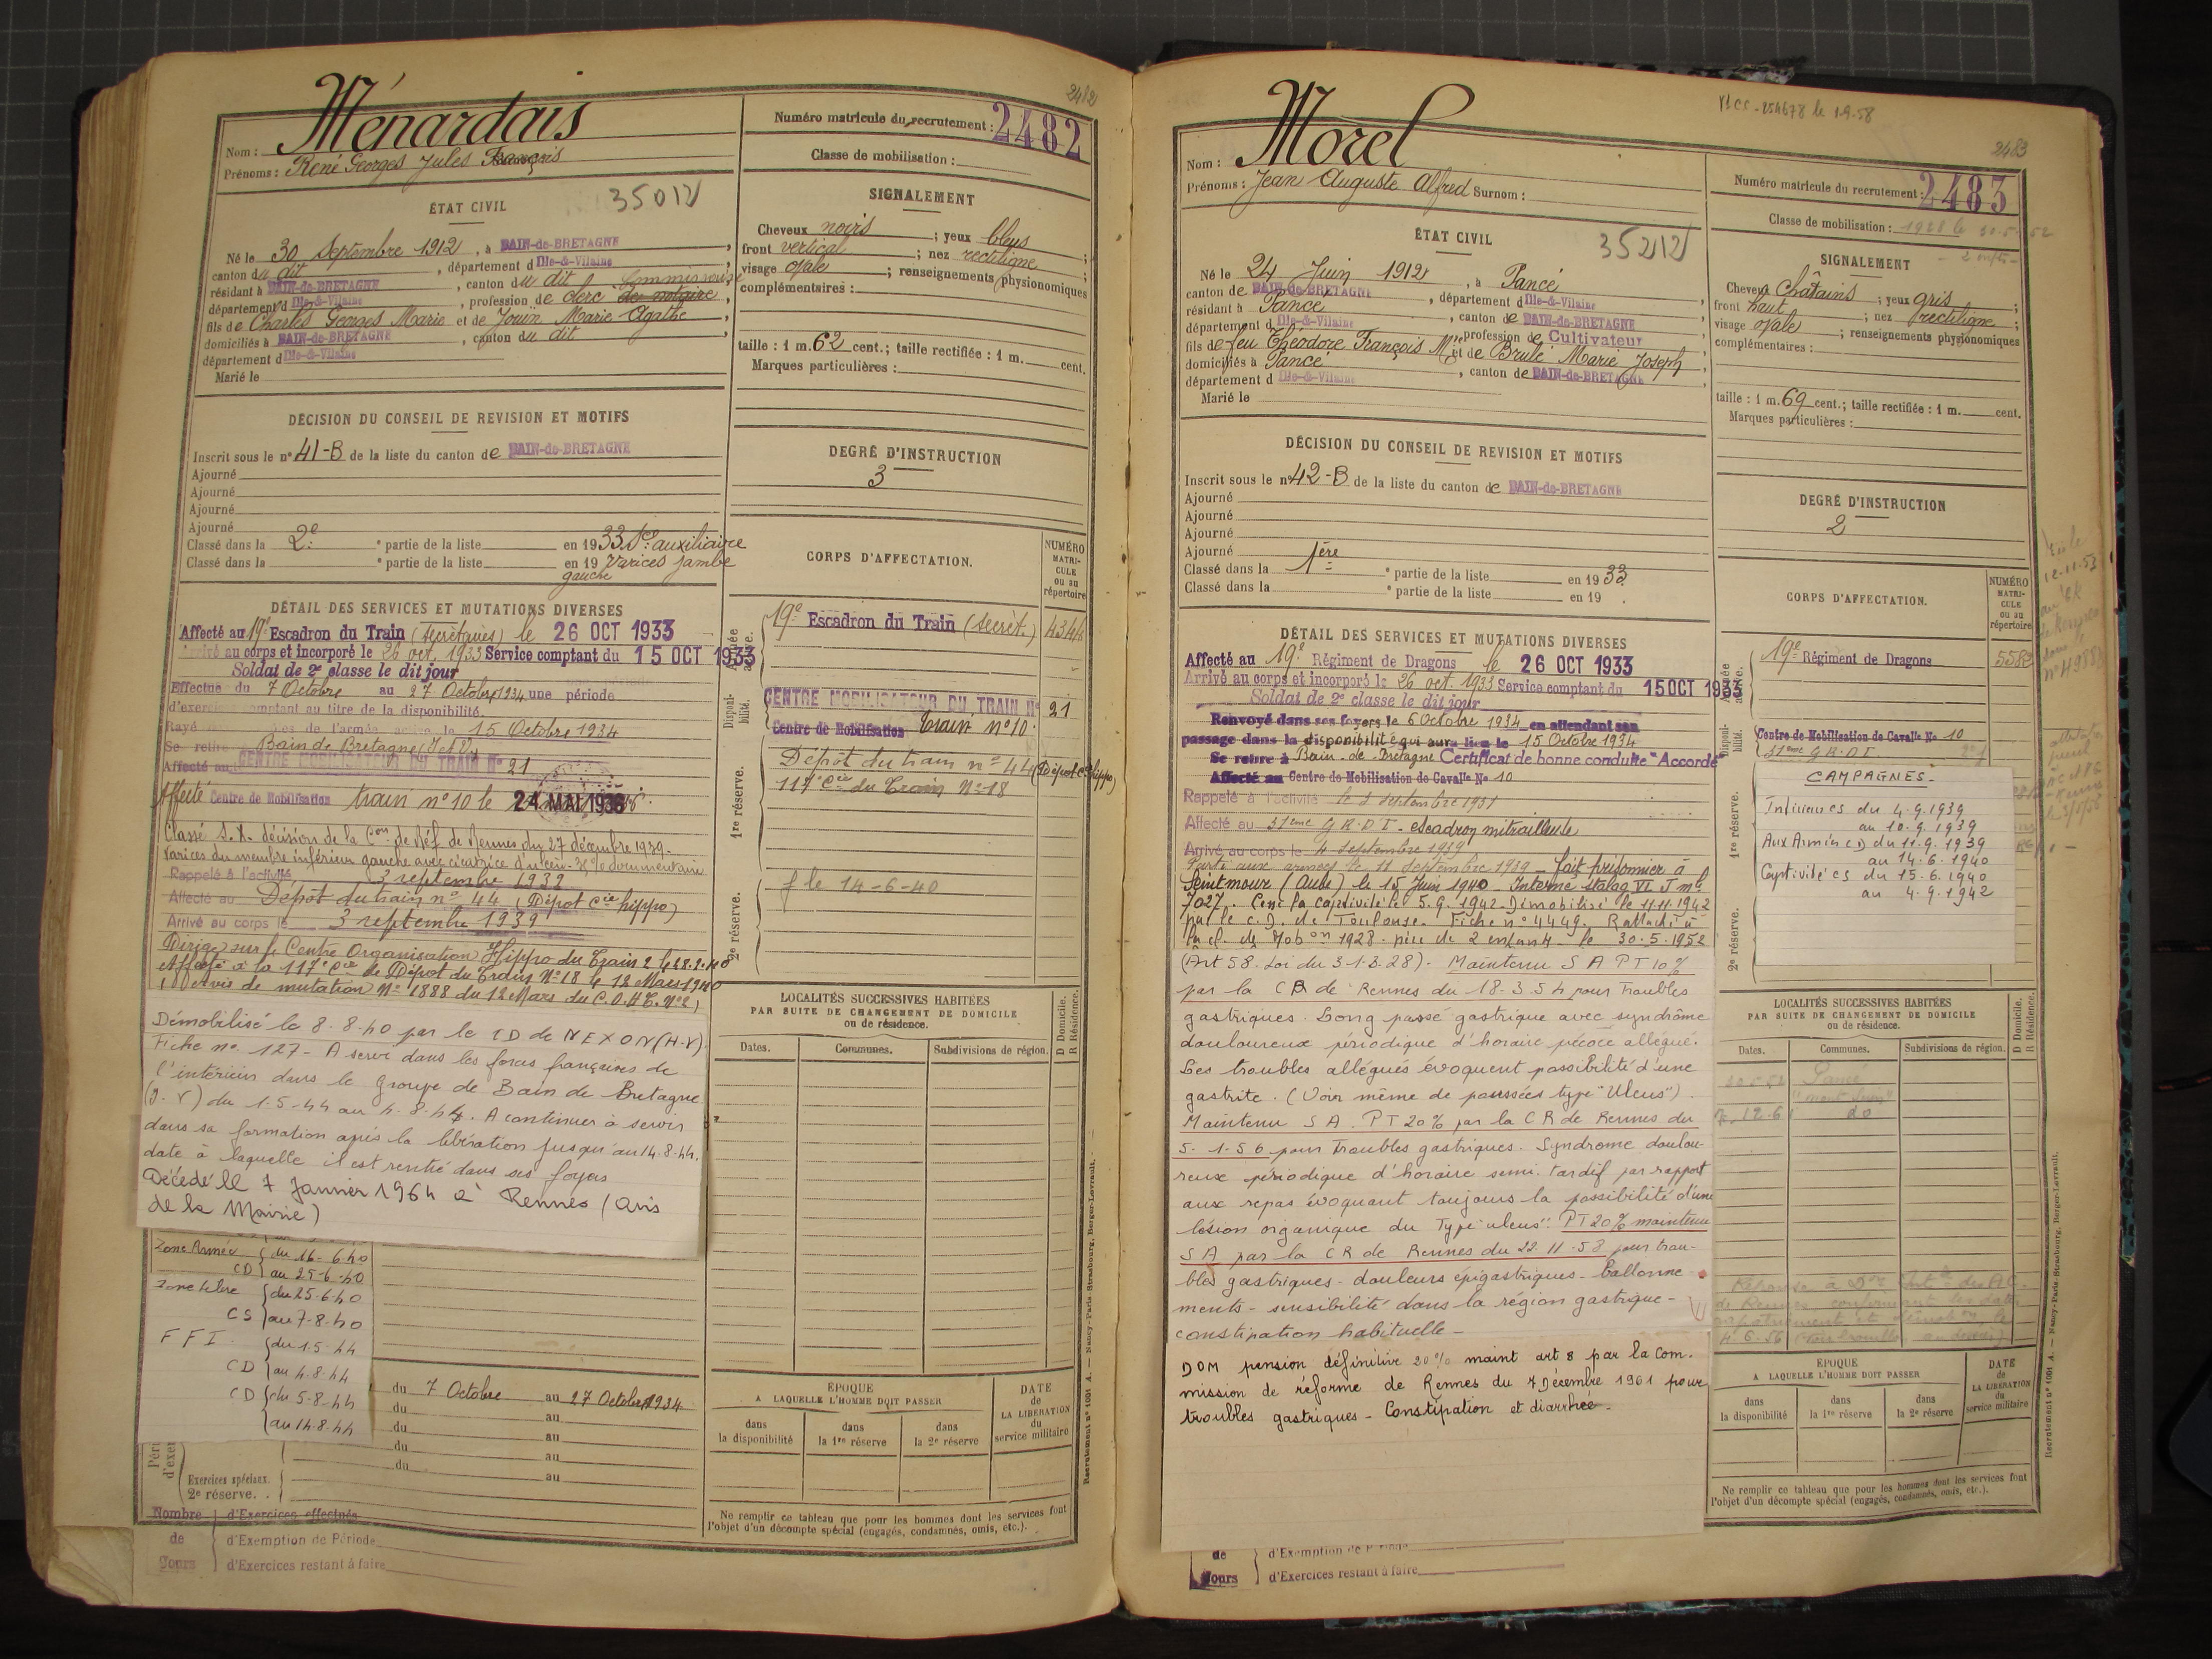 2482
Nom : Ménardais
Prénoms : René Georges Jules François
Numéro matricule du recrutement : 2482
Classe de mobilisation :
ÉTAT CIVIL
35012
Né le 30 Septembre 1912, à BAIN-de-BRETAGNE,
canton du dit, département d'Ille-&-Vilaine
résidant à BAIN-de-BRETAGNE, canton du dit
Commissaire
département d'Ille-&-Vilaine, profession de clerc de notaire,
fils de Charles Georges Marie et de Jouin Marie Agathe
domiciliés à BAIN-de-BRETAGNE, canton du dit
département d'Ille-&-Vilaine
Marié le
SIGNALEMENT
Cheveux noirs ; yeux bleus ;
front vertical ; nez rectiligne ;
visage ovale ; renseignements physionomiques
complémentaires :
taille : 1 m. 62 cent.; taille rectifiée : 1 m. cent.
Marques particulières :
DÉCISION DU CONSEIL DE REVISION ET MOTIFS
Inscrit sous le n° 41-B de la liste du canton de BAIN-de-BRETAGNE
Ajourné
Ajourné
Ajourné
Ajourné
Classé dans la 2e partie de la liste en 1933 Sce auxiliaire
Classé dans la partie de la liste en 19 Varices jambe
gauche
DEGRÉ D'INSTRUCTION
3
DÉTAIL DES SERVICES ET MUTATIONS DIVERSES
Affecté au 19e Escadron du Train (Secrétaires) le 26 OCT 1933
Arrivé au corps et incorporé le 26 oct. 1933 Service comptant du 15 OCT 1933
Soldat de 2e classe le dit jour
Effectue du 7 Octobre au 27 Octobre 1934 une période
d'exercices comptant au titre de la disponibilité
Rayé de l'armée active le 15 Octobre 1934
Se retire Bain de Bretagne
Affecté au CENTRE MOBILISATEUR DU TRAIN N° 21
Affecté Centre de Mobilisation train n° 10 le 24 MAI 1936
Classé S.X. décision de la Con de Réf de Rennes du 27 décembre 1939 -
Varices du membre inférieur gauche avec cicatrice d'ulcère
Rappelé à l'activité 3 septembre 1939
Affecté au Dépôt du train n° 44 (Dépôt Cie hippo)
Arrivé au corps le 3 septembre 1939
Dirigé sur le Centre Organisation Hippo du Train 2 le 28.2.40
Affecté à la 117e Cie de Dépôt du Train N° 18 le 12 Mars 1940
(Avis de mutation N° 1888 du 12 Mars du C.O.H.T. N° 2)
Démobilisé le 8.8.40 par le CD de NEXON (H-V)
Fiche no. 127 - A servi dans les forces françaises de
l'intérieur dans le Groupe de Bain de Bretagne
(I.V) du 1.5.44 au 4.8.44. A continuer à servir
dans sa formation après la libération jusqu'au 14.8.44.
date à laquelle il est rentré dans ses foyers
Décédé le 7 Janvier 1964 à Rennes (avis
de la Mairie)
Zone Armée du 16-6-40
CD au 25-6-40
Zone libre du 25-6-40
CS au 7-8-40
FFI du 1-5-44
CD au 4-8-44
CD du 5-8-44
au 14-8-44
du 7 Octobre au 27 Octobre 1934
du au
du au
du au
du au
Exercices spéciaux.
2e réserve.
Nombre d'Exercices effectués
de d'Exemption de Période
Jours d'Exercices restant à faire
CORPS D'AFFECTATION.
NUMÉRO MATRICULE ou au répertoire
19e Escadron du Train (Secrét.) 4344
Disponibilité.
CENTRE MOBILISATEUR DU TRAIN N° 21
Centre de Mobilisation Train n° 10
1re réserve.
Dépôt du train n° 44 (Dépôt Cie hippo)
117e Cie du Train N° 18
2e réserve.
f le 14-6-40
LOCALITÉS SUCCESSIVES HABITÉES
PAR SUITE DE CHANGEMENT DE DOMICILE
ou de résidence.
D Domicile.
R Résidence.
Dates. Communes. Subdivisions de région.
ÉPOQUE
A LAQUELLE L'HOMME DOIT PASSER
dans la disponibilité
dans la 1re réserve
dans la 2e réserve
DATE de LA LIBÉRATION du service militaire
Ne remplir ce tableau que pour les hommes dont les services font
l'objet d'un décompte spécial (engagés, condamnés, omis, etc.).
Recrutement n° 1061 A. — Nancy-Paris-Strasbourg, Berger-Levrault.
le 1-9-58
2483
Nom : Morel
Prénoms : Jean Auguste Alfred Surnom :
Numéro matricule du recrutement : 2483
Classe de mobilisation : 1928 le 30.5.52
ÉTAT CIVIL
35212
Né le 24 Juin 1912, à Pancé
canton de BAIN-de-BRETAGNE, département d'Ille-&-Vilaine
résidant à Pancé, canton de BAIN-de-BRETAGNE
département d'Ille-&-Vilaine, profession de Cultivateur
fils de feu Théodore François Mie et de Brulé Marie Joseph
domiciliés à Pancé, canton de BAIN-de-BRETAGNE
département d'Ille-&-Vilaine
Marié le
SIGNALEMENT
Cheveux Châtains ; yeux gris ;
front haut ; nez rectiligne ;
visage ovale ; renseignements physionomiques
complémentaires :
taille : 1 m. 69 cent.; taille rectifiée : 1 m. cent.
Marques particulières :
DÉCISION DU CONSEIL DE REVISION ET MOTIFS
Inscrit sous le n° 42-B de la liste du canton de BAIN-de-BRETAGNE
Ajourné
Ajourné
Ajourné
Ajourné
Classé dans la 1ère partie de la liste en 1933.
Classé dans la partie de la liste en 19 .
DEGRÉ D'INSTRUCTION
2
DÉTAIL DES SERVICES ET MUTATIONS DIVERSES
Affecté au 19e Régiment de Dragons le 26 OCT 1933
Arrivé au corps et incorporé le 26 oct. 1933 Service comptant du 15 OCT 1933
Soldat de 2e classe le dit jour
Renvoyé dans ses foyers le 6 Octobre 1934 en attendant son
passage dans la disponibilité qui aura lieu le 15 Octobre 1934
Se retire à Bain-de-Bretagne Certificat de bonne conduite "Accordé"
Affecté au Centre de Mobilisation de Cavalie No 10
Rappelé à l'activité le septembre
Affecté au 31eme G.R.D.I. - escadron mitrailleuse
Arrivé au corps le 4 septembre 1939
Parti aux armées le 11 septembre 1939 - fait prisonnier à
(Aube) le 15 Juin 1940 - Interné stalag VI J mle
7027. Cesse la captivité le 5.9.1942 Démobilisé le 11.11.1942
par le C.D. de Toulouse. Fiche n° 4449. Rattaché à
la cl. de Mobon 1928. père de 2 enfants le 30.5.1952
(Art 58. Loi du 31.3.28). Maintenu S A PT 10%
par la CR de Rennes du 18.3.54 pour Troubles
gastriques. Long passé gastrique avec syndrôme
douloureux périodique d'horaire précoce allégué.
Les troubles allégués évoquent possibilité d'une
gastrite. (Voir même de poussées type "Ulcus").
Maintenu S A. PT 20% par la CR de Rennes du
5.1.56 pour Troubles gastriques. Syndrome doulou-
reux périodique d'horaire semi. tardif par rapport
aux repas évoquant toujours la possibilité d'une
lésion organique du Type "ulcus". PT 20% maintenu
S A par la CR de Rennes du 22.11.58 pour trou-
bles gastriques - douleurs épigastriques - ballonne-
ments - sensibilité dans la région gastrique -
constipation habituelle -
DOM pension définitive 20% maint art 8 par la Com.
mission de réforme de Rennes du 7 Décembre 1961 pour
troubles gastriques - Constipation et diarrhée.
de d'Exemption de Période
Jours d'Exercices restant à faire
CORPS D'AFFECTATION.
NUMÉRO MATRICULE ou au répertoire
19e Régiment de Dragons 5582
Disponibilité.
Centre de Mobilisation de Cavalie No 10
31eme G.R.D.I.
1re réserve.
2e réserve.
CAMPAGNES -
Intérieur CS du 4.9.1939
au 10.9.1939
Aux Armées CD du 11.9.1939
au 14.6.1940
Captivité CS du 15.6.1940
au 4.9.1942
LOCALITÉS SUCCESSIVES HABITÉES
PAR SUITE DE CHANGEMENT DE DOMICILE
ou de résidence.
D Domicile.
R Résidence.
Dates. Communes. Subdivisions de région.
Pancé
do
ÉPOQUE
A LAQUELLE L'HOMME DOIT PASSER
dans la disponibilité
dans la 1re réserve
dans la 2e réserve
DATE de LA LIBÉRATION du service militaire
Ne remplir ce tableau que pour les hommes dont les services font
l'objet d'un décompte spécial (engagés, condamnés, omis, etc.).
Recrutement n° 1061 A. — Nancy-Paris-Strasbourg, Berger-Levrault.